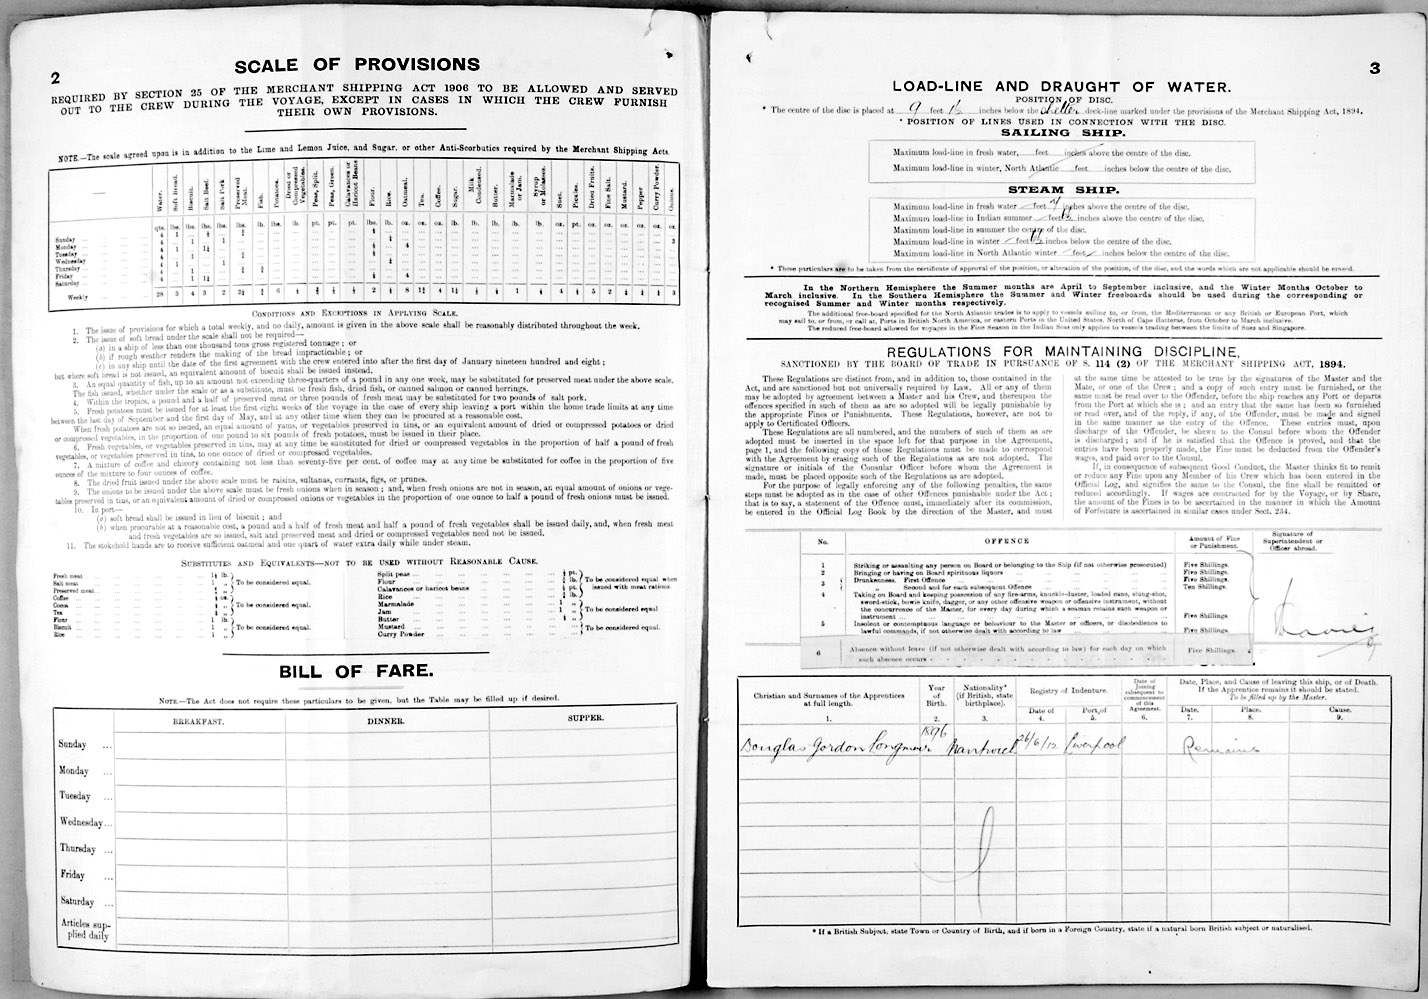 2
SCALE OF PROVISIONS
REQUIRED BY SECTION 25 OF THE MERCHANT SHIPPING ACT 1906 TO BE ALLOWED AND SERVED
OUT TO THE CREW DURING THE VOYAGE, EXCEPT IN CASES IN WHICH THE CREW FURNISH
THEIR OWN PROVISIONS.
NOTE.—The scale agreed upon is in addition to the Lime and Lemon Juice, and Sugar, or other Anti-Scorbutics required by the Merchant Shipping Acts.
Water. Soft Bread. Biscuit. Salt Beef. Salt Pork. Preserved Meat. Fish. Potatoes. Dried or Compressed Vegetables. Peas, Split. Peas, Green. Calavances or Haricot Beans. Flour. Rice. Oatmeal. Tea. Coffee. Sugar. Milk Condensed. Butter. Marmalade or Jam. Syrup or Molasses. Suet. Pickles. Dried Fruits. Fine Salt. Mustard. Pepper. Curry Powder. Onions.
Sunday
Monday
Tuesday
Wednesday
Thursday
Friday
Saturday
Weekly
CONDITIONS AND EXCEPTIONS IN APPLYING SCALE.
1. The issue of provisions for which a total weekly, and no daily, amount is given in the above scale shall be reasonably distributed throughout the week.
2. The issue of soft bread under the scale shall not be required—
(a) in a ship of less than one thousand tons gross registered tonnage; or
(b) if rough weather renders the making of the bread impracticable; or
(c) in any ship until the date of the first agreement with the crew entered into after the first day of January nineteen hundred and eight;
but where soft bread is not issued, an equivalent amount of biscuit shall be issued instead.
3. An equal quantity of fish, up to an amount not exceeding three-quarters of a pound in any one week, may be substituted for preserved meat under the above scale.
The fish issued, whether under the scale or as a substitute, must be fresh fish, dried fish, or canned salmon or canned herrings.
4. Within the tropics, a pound and a half of preserved meat or three pounds of fresh meat may be substituted for two pounds of salt pork.
5. Fresh potatoes must be issued for at least the first eight weeks of the voyage in the case of every ship leaving a port within the home trade limits at any time
between the last day of September and the first day of May, and at any other time when they can be procured at a reasonable cost.
When fresh potatoes are not so issued, an equal amount of yams, or vegetables preserved in tins, or an equivalent amount of dried or compressed potatoes or dried
or compressed vegetables, in the proportion of one pound to six pounds of fresh potatoes, must be issued in their place.
6. Fresh vegetables, or vegetables preserved in tins, may at any time be substituted for dried or compressed vegetables in the proportion of half a pound of fresh
vegetables, or vegetables preserved in tins, to one ounce of dried or compressed vegetables.
7. A mixture of coffee and chicory containing not less than seventy-five per cent. of coffee may at any time be substituted for coffee in the proportion of five
ounces of the mixture to four ounces of coffee.
8. The dried fruit issued under the above scale must be raisins, sultanas, currants, figs, or prunes.
9. The onions to be issued under the above scale must be fresh onions when in season; and, when fresh onions are not in season, an equal amount of onions or vege-
tables preserved in tins, or an equivalent amount of dried or compressed onions or vegetables in the proportion of one ounce to half a pound of fresh onions must be issued.
10. In port—
(a) soft bread shall be issued in lieu of biscuit; and
(b) when procurable at a reasonable cost, a pound and a half of fresh meat and half a pound of fresh vegetables shall be issued daily, and, when fresh meat
and fresh vegetables are so issued, salt and preserved meat and dried or compressed vegetables need not be issued.
11. The stokehold hands are to receive sufficient oatmeal and one quart of water extra daily while under steam.
SUBSTITUTES AND EQUIVALENTS—NOT TO BE USED WITHOUT REASONABLE CAUSE.
Fresh meat
Salt meat
Preserved meat
To be considered equal.
Coffee
Cocoa
Tea
To be considered equal.
Flour
Biscuit
Rice
To be considered equal.
Split peas
Flour
Calavances or haricot beans
Rice
To be considered equal when issued with meat rations.
Marmalade
Jam
Butter
To be considered equal
Mustard
Curry Powder
To be considered equal.
BILL OF FARE.
NOTE.—The Act does not require these particulars to be given, but the Table may be filled up if desired.
BREAKFAST. DINNER. SUPPER.
Sunday
Monday
Tuesday
Wednesday
Thursday
Friday
Saturday
Articles sup-
plied daily
3
LOAD-LINE AND DRAUGHT OF WATER.
POSITION OF DISC.
* The centre of the disc is placed at 9 feet 1½ inches below the shelter deck-line marked under the provisions of the Merchant Shipping Act, 1894.
* POSITION OF LINES USED IN CONNECTION WITH THE DISC.
SAILING SHIP.
Maximum load-line in fresh water, feet inches above the centre of the disc.
Maximum load-line in winter, North Atlantic feet inches below the centre of the disc.
STEAM SHIP.
Maximum load-line in fresh water feet 7 inches above the centre of the disc.
Maximum load-line in Indian summer feet inches above the centre of the disc.
Maximum load-line in summer the centre of the disc.
Maximum load-line in winter feet inches below the centre of the disc.
Maximum load-line in North Atlantic winter feet inches below the centre of the disc.
* These particulars are to be taken from the certificate of approval of the position, or alteration of the position, of the disc, and the words which are not applicable should be erased.
In the Northern Hemisphere the Summer months are April to September inclusive, and the Winter Months October to
March inclusive. In the Southern Hemisphere the Summer and Winter freeboards should be used during the corresponding or
recognised Summer and Winter months respectively.
The additional free-board specified for the North Atlantic trades is to apply to vessels sailing to, or from, the Mediterranean or any British or European Port, which
may sail to, or from, or call at, Ports in British North America, or eastern Ports in the United States, North of Cape Hatteras, from October to March inclusive.
The reduced free-board allowed for voyages in the Fine Season in the Indian Seas only applies to vessels trading between the limits of Suez and Singapore.
REGULATIONS FOR MAINTAINING DISCIPLINE,
SANCTIONED BY THE BOARD OF TRADE IN PURSUANCE OF S. 114 (2) OF THE MERCHANT SHIPPING ACT, 1894.
These Regulations are distinct from, and in addition to, those contained in the
Act, and are sanctioned but not universally required by Law. All or any of them
may be adopted by agreement between a Master and his Crew, and thereupon the
offences specified in such of them as are so adopted will be legally punishable by
the appropriate Fines or Punishments. These Regulations, however, are not to
apply to Certificated Officers.
These Regulations are all numbered, and the numbers of such of them as are
adopted must be inserted in the space left for that purpose in the Agreement,
page 1, and the following copy of these Regulations must be made to correspond
with the Agreement by erasing such of the Regulations as are not adopted. The
signature or initials of the Consular Officer before whom the Agreement is
made, must be placed opposite such of the Regulations as are adopted.
For the purpose of legally enforcing any of the following penalties, the same
steps must be adopted as in the case of other Offences punishable under the Act;
that is to say, a statement of the Offence must, immediately after its commission,
be entered in the Official Log Book by the direction of the Master, and must
at the same time be attested to be true by the signatures of the Master and the
Mate, or one of the Crew; and a copy of such entry must be furnished, or the
same must be read over to the Offender, before the ship reaches any Port or departs
from the Port at which she is; and an entry that the same has been so furnished
or read over, and of the reply, if any, of the Offender, must be made and signed
in the same manner as the entry of the Offence. These entries must, upon
discharge of the Offender, be shewn to the Consul before whom the Offender
is discharged; and if he is satisfied that the Offence is proved, and that the
entries have been properly made, the Fine must be deducted from the Offender's
wages, and paid over to the Consul.
If, in consequence of subsequent Good Conduct, the Master thinks fit to remit
or reduce any Fine upon any Member of his Crew which has been entered in the
Official Log, and signifies the same to the Consul, the fine shall be remitted or
reduced accordingly. If wages are contracted for by the Voyage, or by Share,
the amount of the Fines is to be ascertained in the manner in which the Amount
of Forfeiture is ascertained in similar cases under Sect. 234.
No. OFFENCE Amount of Fine or Punishment. Signature of Superintendent or Officer abroad.
1 Striking or assaulting any person on Board or belonging to the Ship (if not otherwise prosecuted) Five Shillings.
2 Bringing or having on Board spirituous liquors Five Shillings.
3 Drunkenness. First Offence Five Shillings.
" Second and for each subsequent Offence Ten Shillings.
4 Taking on Board and keeping possession of any fire-arms, knuckle-duster, loaded cane, slung-shot,
sword-stick, bowie knife, dagger, or any other offensive weapon or offensive instrument, without
the concurrence of the Master, for every day during which a seaman retains such weapon or
instrument Five Shillings.
5 Insolent or contemptuous language or behaviour to the Master or officers, or disobedience to
lawful commands, if not otherwise dealt with according to law Five Shillings.
6 Absence without leave (if not otherwise dealt with according to law) for each day on which
such absence occurs Five Shillings.
Christian and Surnames of the Apprentices at full length. Year of Birth. Nationality* (if British, state birthplace). Registry of Indenture. Date of Joining subsequent to commencement of this Agreement. Date, Place, and Cause of leaving this ship, or of Death.
If the Apprentice remains it should be stated.
To be filled up by the Master.
Date of Port of Date. Place. Cause.
1. 2. 3. 4. 5. 6. 7. 8. 9.
Douglas Gordon Longmuir 1896 Nantwich 26/6/12 Liverpool Remains
* If a British Subject, state Town or Country of Birth, and if born in a Foreign Country, state if a natural born British subject or naturalised.